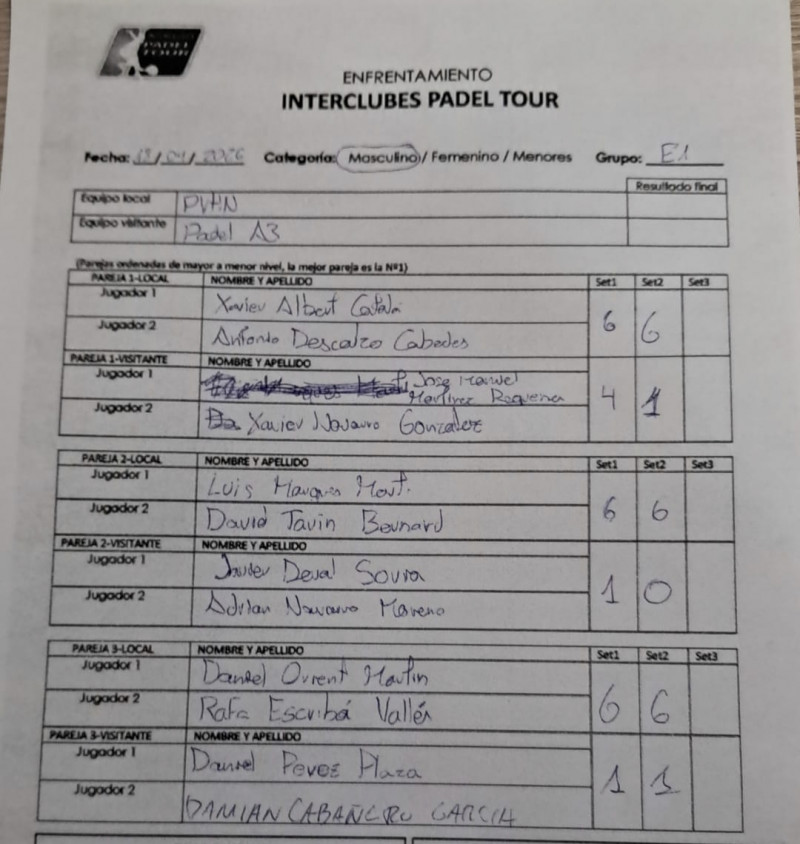 PADEL
TOUR
ENFRENTAMIENTO
INTERCLUBES PADEL TOUR
Fecha: / / 2026 Categoría: Masculino / Femenino / Menores Grupo: E1
Resultado final
Equipo local
Equipo visitante Padel A3
(Parejas ordenadas de mayor a menor nivel, la mejor pareja es la Nº1)
PAREJA 1-LOCAL NOMBRE Y APELLIDO Set1 Set2 Set3
Jugador 1 Xavier Albert Catalá
6 6
Jugador 2 Antonio Descalzo Cabades
PAREJA 1-VISITANTE NOMBRE Y APELLIDO
Jugador 1 Jose Manuel
Martinez Requena
4 1
Jugador 2 Xavier Navarro Gonzalez
PAREJA 2-LOCAL NOMBRE Y APELLIDO Set1 Set2 Set3
Jugador 1 Luis Marques
6 6
Jugador 2 David Tavin Bernard
PAREJA 2-VISITANTE NOMBRE Y APELLIDO
Jugador 1 Javier Deval
1 0
Jugador 2 Adrian Navarro Moreno
PAREJA 3-LOCAL NOMBRE Y APELLIDO Set1 Set2 Set3
Jugador 1 Daniel Orient Martin
6 6
Jugador 2 Rafa Escribá Vallés
PAREJA 3-VISITANTE NOMBRE Y APELLIDO
Jugador 1 Daniel Perez Plaza
1 1
Jugador 2 DAMIAN CABAÑERO GARCIA